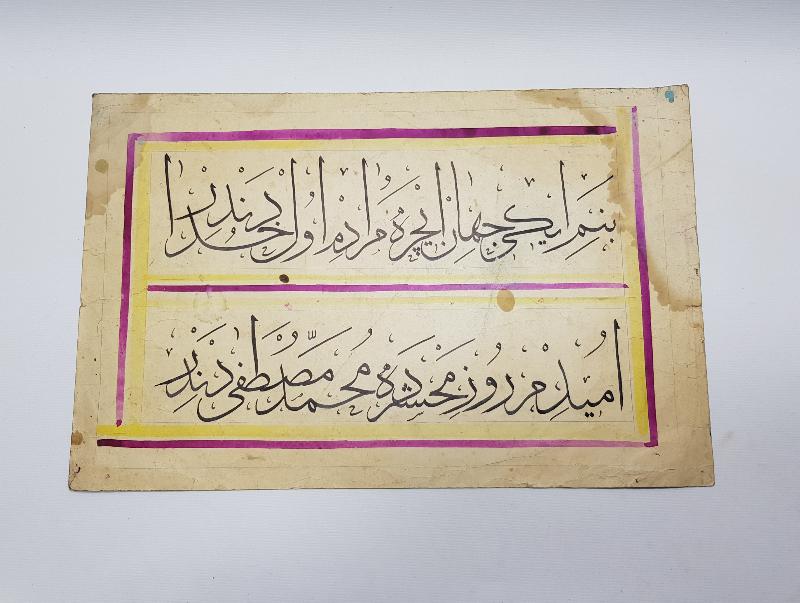 بنم ايكى جهان ايچره مرادم اول خدادندر
اميدم روز محشرده محمد مصطفى دندر